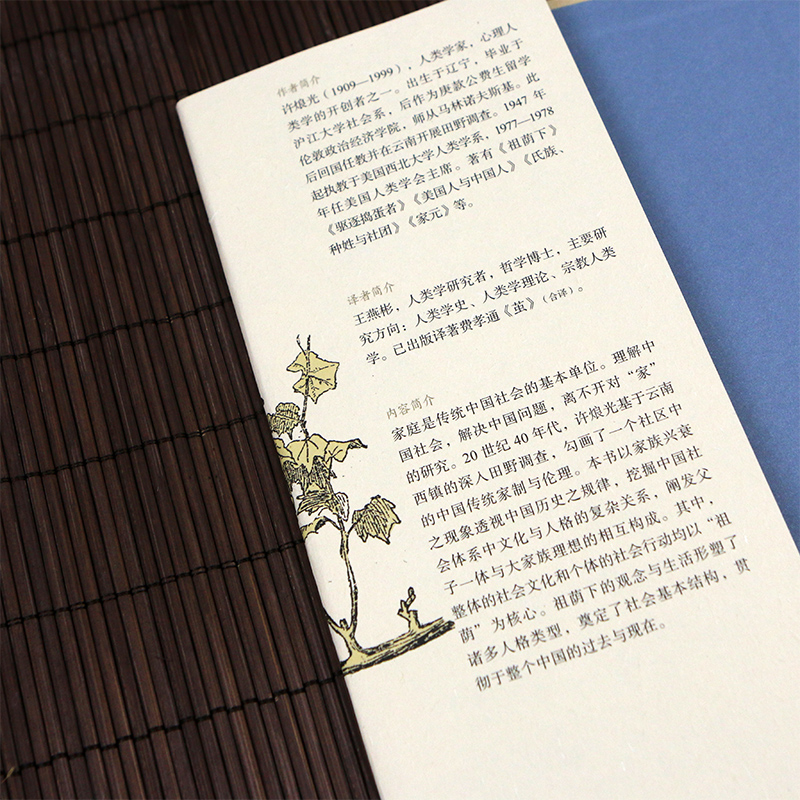 作者简介
许烺光（1909—1999），人类学家，心理人
类学的开创者之一。出生于辽宁，毕业于
沪江大学社会系，后作为庚款公费生留学
伦敦政治经济学院，师从马林诺夫斯基。此
后回国任教并在云南开展田野调查。1947 年
起执教于美国西北大学人类学系，1977—1978
年任美国人类学会主席。著有《祖荫下》
《驱逐捣蛋者》《美国人与中国人》《氏族、
种姓与社团》《家元》等。
译者简介
王燕彬，人类学研究者，哲学博士，主要研
究方向：人类学史、人类学理论、宗教人类
学。已出版译著费孝通《茧》（合译）。
内容简介
家庭是传统中国社会的基本单位。理解中
国社会，解决中国问题，离不开对“家”
的研究。20 世纪 40 年代，许烺光基于云南
西镇的深入田野调查，勾画了一个社区中
的中国传统家制与伦理。本书以家族兴衰
之现象透视中国历史之规律，挖掘中国社
会体系中文化与人格的复杂关系，阐发父
子一体与大家族理想的相互构成。其中，
整体的社会文化和个体的社会行动均以“祖
荫”为核心。祖荫下的观念与生活形塑了
诸多人格类型，奠定了社会基本结构，贯
彻于整个中国的过去与现在。